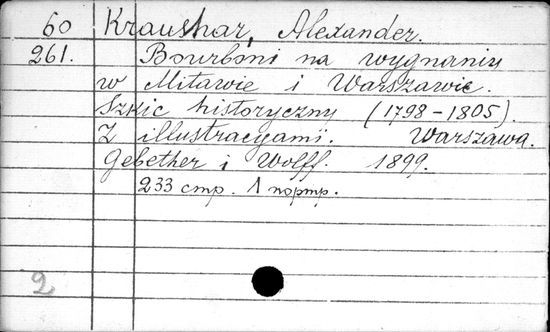 60 Kraushar, Alexander.
261. Bourboni na wygnaniu
w Mitawie i Warszawie.
Szkic historyczny (1798-1805).
Z illustracyami. Warszawa.
Gebether i Wolff. 1899.
233 стр. 1 портр.
2